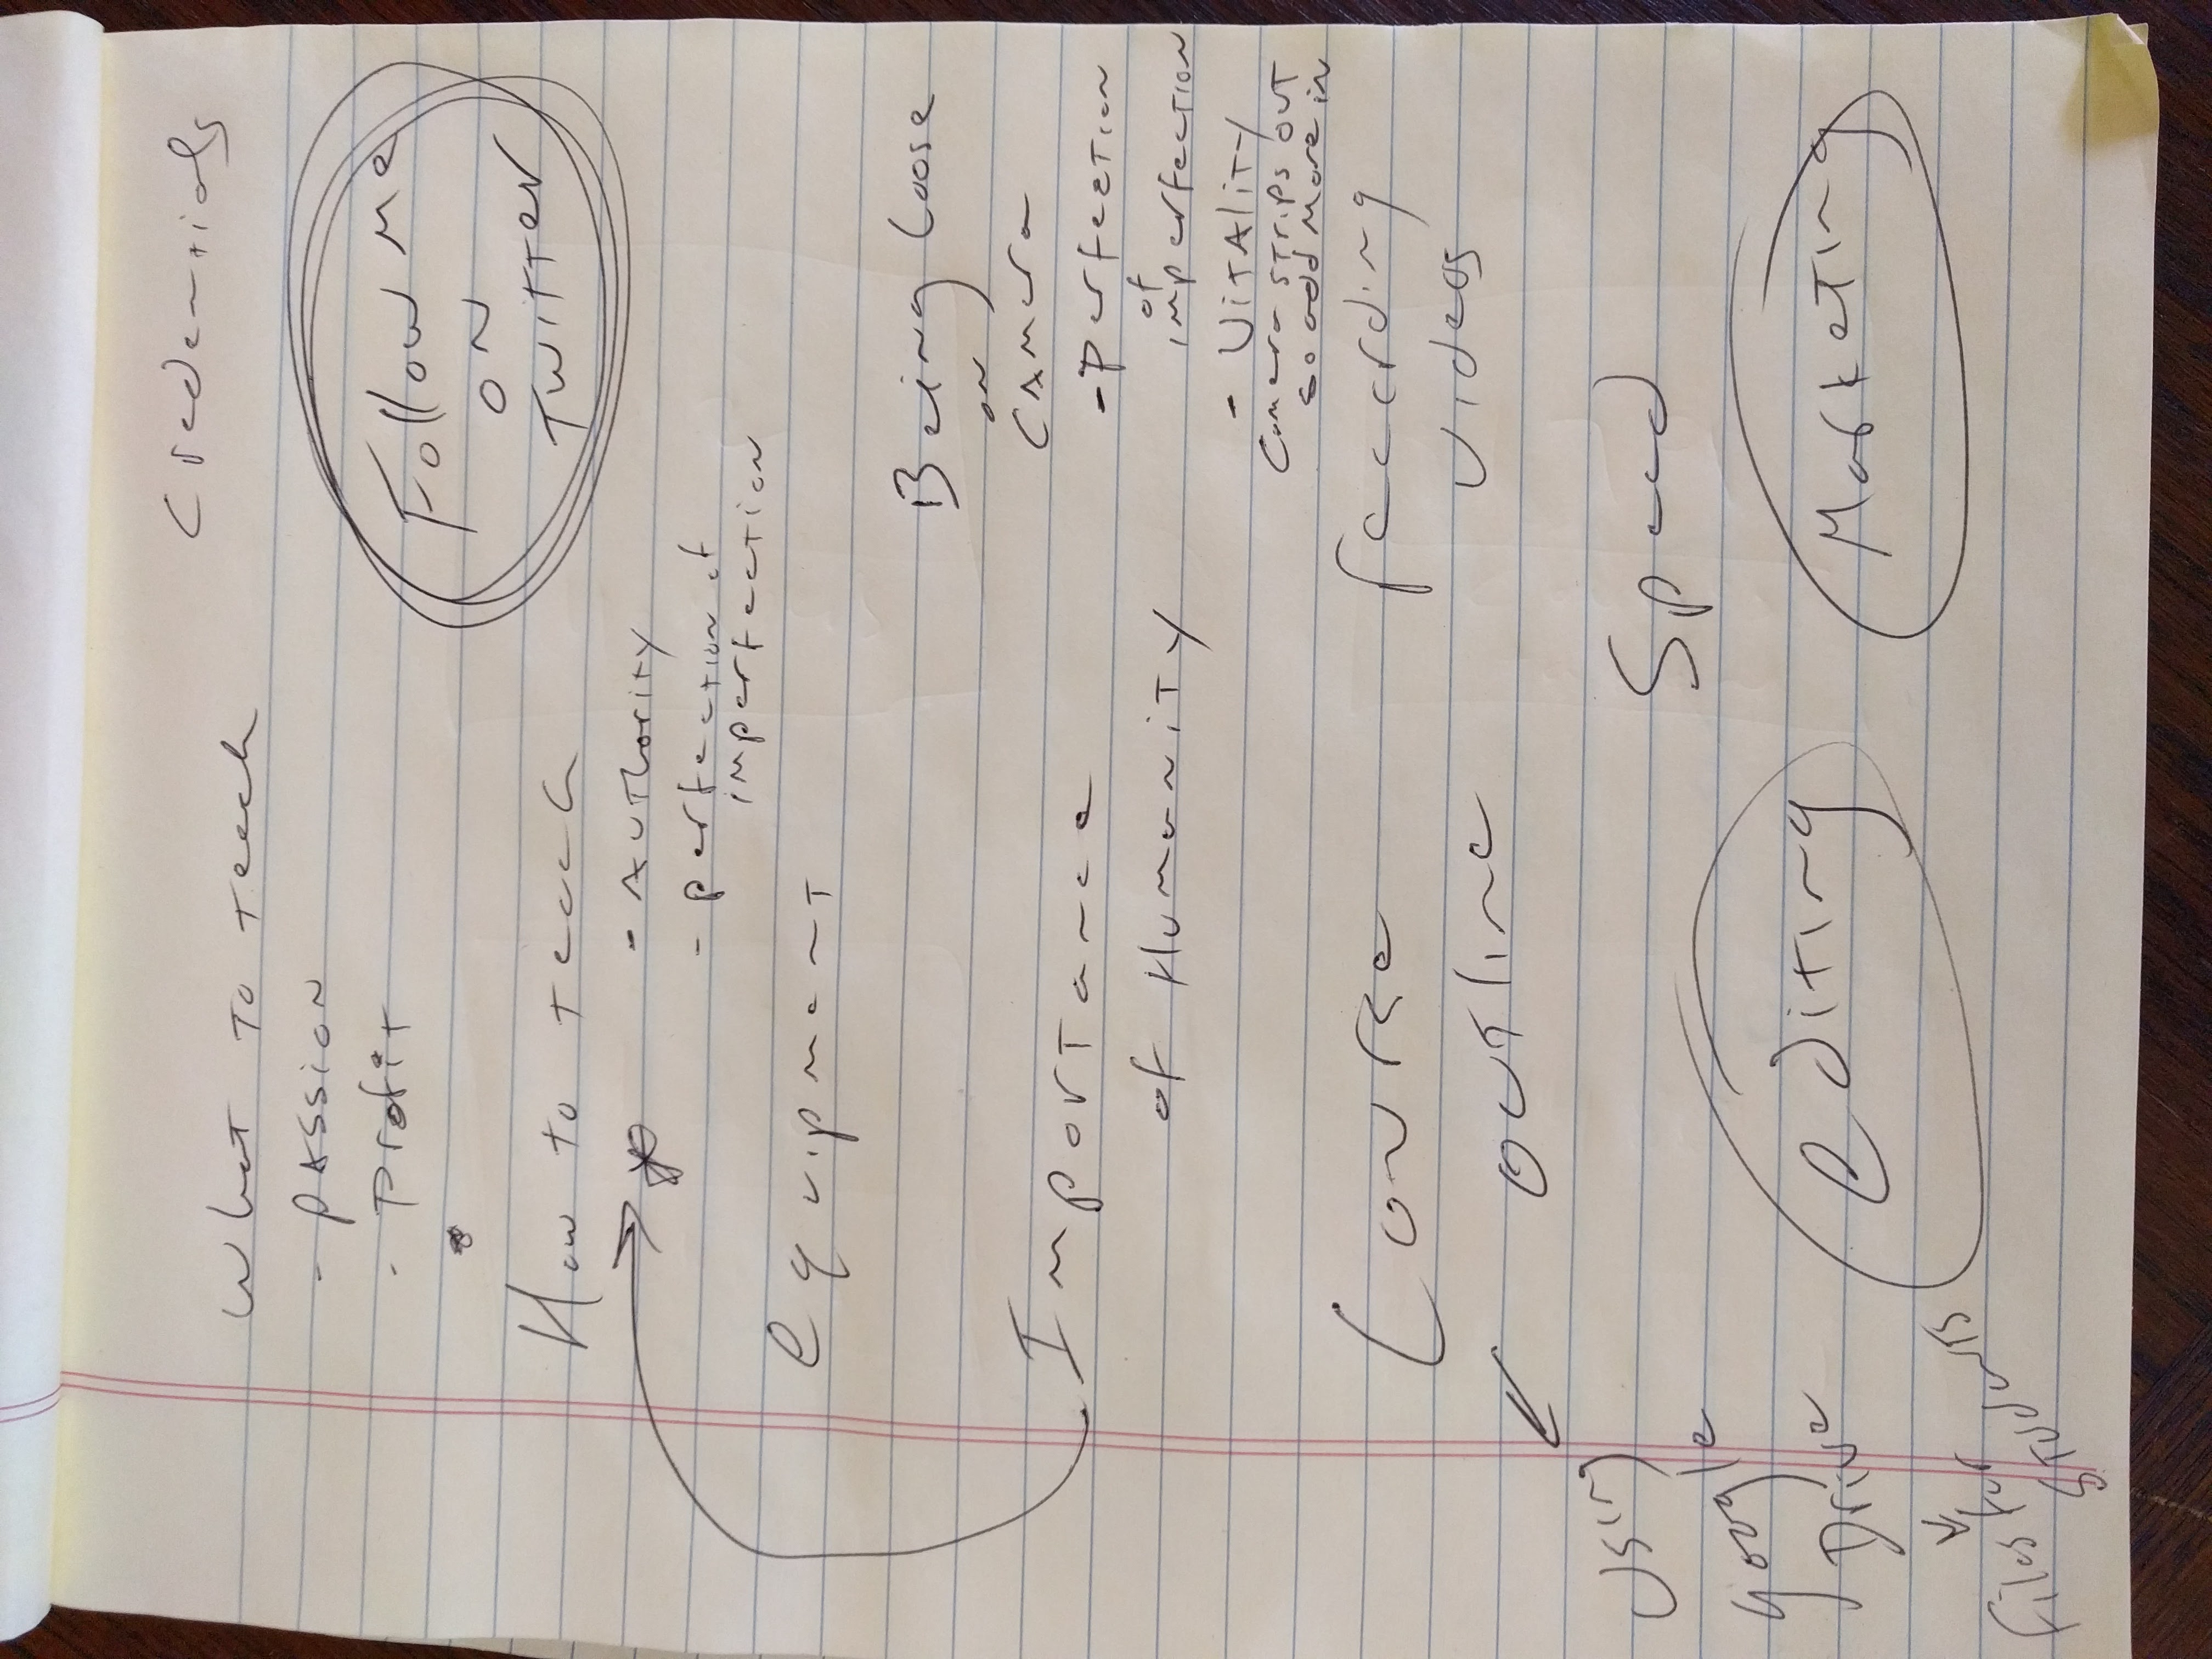 What to teach
- PASSION
- Profit
How to teach
- AUThority
- perfection of
imperfection
equipment
Importance
of Humanity
Course
outline
Using
google
Drive
files for
editing
Credentials
Follow Me
ON
TwiTTer
Being Loose
on
CAmera
- Perfection
of
imperfection
- VitAliTy
Camera STrips OUT
so add More in
recording
videos
Speed
MarkeTing